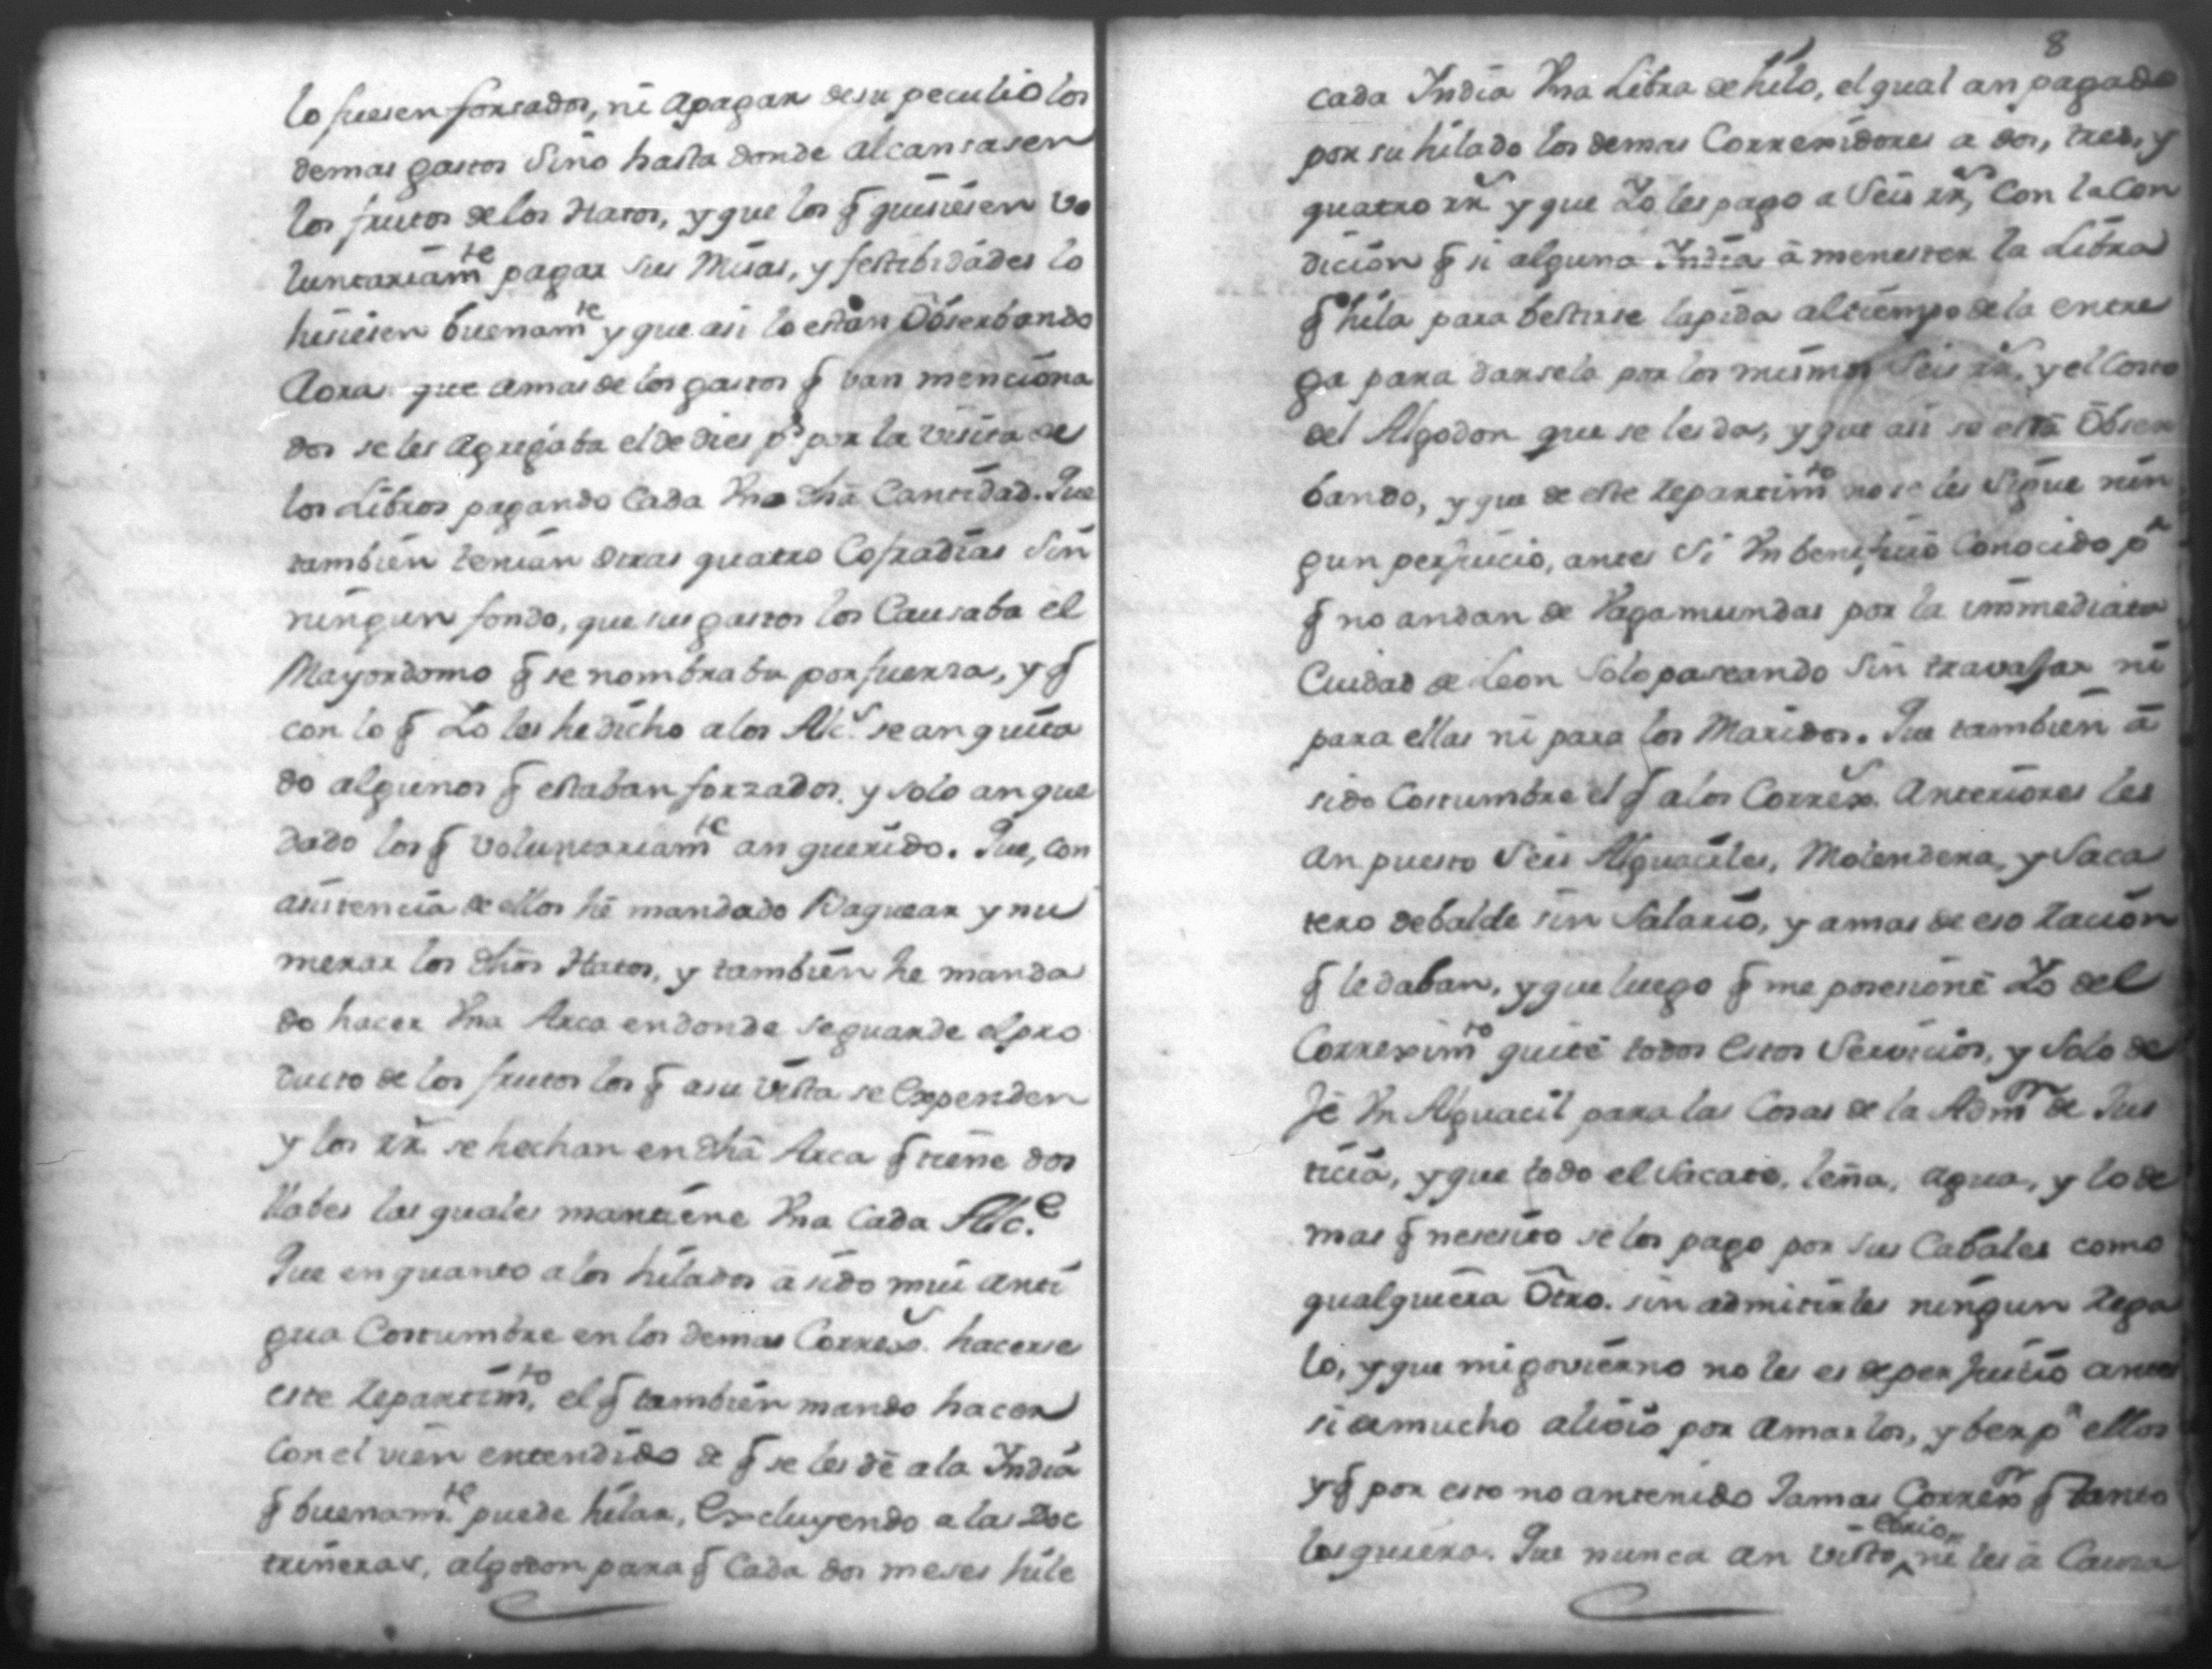 lo fuesen forsados, ni apagar desu peculio los
demas gastos Sino hasta donde alcansasen
los frutos de los Hatos, y que los q̄ quisiesen vo
luntariam.te pagar sus Misas, y festibidades lo
hisiesen buenam.te y que asi lo están Obserbando
Aora que amas de los gastos q̄ ban menciona
dos se les agregaba el de dies p.s por la visita de
los Libros pagando Cada Vna dhã Cantidad. Que
tambien tenian otras quatro Cofradias Sin
ningun fondo, que sus gastos los Causaba el
Mayordomo q̄ se nombraba por fuerza, y q̄
con lo q̄ Yo les he dicho a los Alc.s se an quita
do algunos q̄ estaban forzados, y solo an que
dado los q̄ voluntariam.te an querido. Que, con
asistencia de ellos hé mandado Vaquear y nu
merar los dhõs Hatos, y tambien he manda
do hacer Vna Arca en donde se guarde el pro
ducto de los frutos los q̄ asu vista se Expenden
y los rr.s se hechan en dhã Arca q̄ tiene dos
llabes las quales mantiene Vna Cada Alc.e
Que en quanto a los hilados á sido mui anti
gua Costumbre en los demas Correx.s hacerse
este repartim.to, el q̄ tambien mando hacer
con el vien entendido de q̄ se les dé a la India
q̄ buenam.te puede hilar, Excluyendo a las Doc
trineras, algodon para q̄ Cada dos meses hile
8
cada India Vna Libra de hilo, el qual an pagado
por su hilado los demas Correxidores a dos, tres, y
quatro rr.s y que Yo les pago a Seis rr.s, Con la Con
dicion q̄ si alguna India á menester la Libra
q̄ hila para bestirse la pida al tiempo de la entre
ga para darsela por los mismos Seis rr.s, y el Costo
del Algodon que se les da, y que asi se está Obser
bando, y que de este repartim.to no se les Sigue nin
gun perjuicio, antes Si Vn beneficio Conocido p.r
q̄ no andan de Vagamundas por la immediata
Ciudad de Leon Solo paseando Sin travajar ni
para ellas ni para los Maridos. Que tambien á
sido Costumbre el q̄ a los Correx.s Anteriores les
an puesto Seis Alguaciles, Molendera, y Saca
tero debalde sin Salario, y amas de eso racion
q̄ le daban, y que luego q̄ me posesioné Yo del
Correxim.to quité todos estos Servicios, y Solo de
jé Vn Alguacil para las Cosas de la Adm.on de Jus
ticia, y que todo el Sacate, leña, agua, y lo de
mas q̄ nesesito se los pago por sus Cabales como
qualquiera Otro. sin admitirles ningun rega
lo, y que mi govierno no les es de perjuicio antes
si de mucho alivio por amarlos, y ber p.r ellos
y q̄ por esto no an tenido Jamas Correx.or q̄ tanto
los quiera. Que nunca an visto ebrio, ni les á Causa